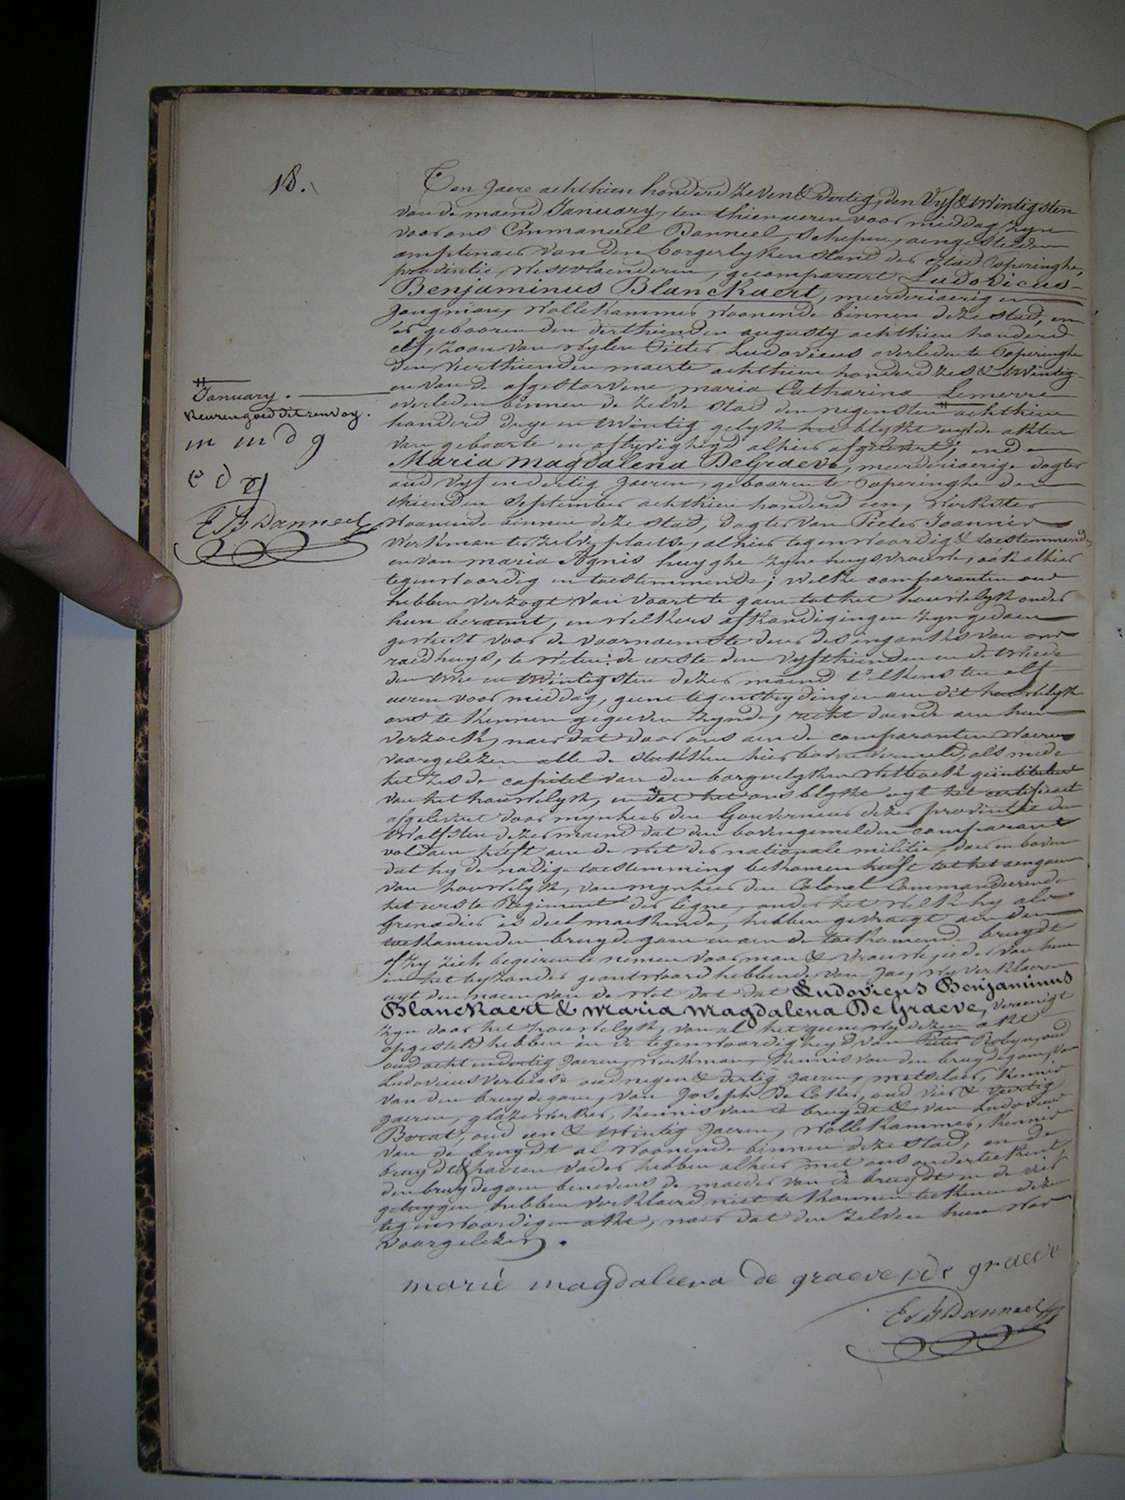 18.
Ten Jaere achthien honderd zeven & dertig, den Vyf & twintigsten
van de maend January, ten thien ueren voor middag, zyn
voor ons Emmanuel Banneel, schepen, aengestelden
amptenaer van den borgerlyken stand der stad Poperinghe,
provintie Westvlaenderen, gecompareert Ludovicus-
Benjaminus Blanckaert, meerderjaerig en
Jongman, Wollekammer woonende binnen deze stad, en
er gebooren den derthienden augusty achthien honderd
elf, zoon van wylen Pieter Ludovicus overleden te Poperinghe
den vierthienden maerte achthien honderd zes & twintig
en van de afgestorvene maria Catharina Lemerre
overleden binnen de zelve stad den negensten # achthien
honderd dry en twintig gelyk het blykt uyt de akten
van geboorte en aflyvigheyd alhier afgelevert; ende
Maria Magdalena DeGraeve, meerderjaerige dogter
oud vyf en dertig Jaeren, gebooren te Poperinghe den
thienden September achthien honderd een, werkster
woonende binnen deze stad, dogter van Pieter Joannes
werkman ter zelve plaets, alhier tegenwoordig & toestemmende
en van maria Agnis huyghe zyne huysvrouwe, ook alhier
tegenwoordig en toestemmende; welke comparanten ons
hebben verzogt van voort te gaen tot het houwelyk onder
hun beraemt, en welkers afkondigingen zyn gedaen
geweest voor de voornaemste deur des ingangs van ons
raedhuys, te weten: de eerste den vyfthienden en de tweede
den twee en twintigsten dezer maend t'elkens ten elf
ueren voor middag, geene tegenstrydingen aen dit houwelyk
ons te kennen gegeven zynde, recht doende aen hun
verzoek, naer dat door ons aen de comparanten waeren
voorgelezen alle de stukken hier boven vermeld, als mede
het zesde capitel van den borgerlyken wetboek geintituleert
van het houwelyk, en dat het ons blykt uyt het certificaet
afgelevert door mynheer den Gouverneur dezer provintie den
twalfsten dezer maend dat den bovengemelden comparant
voldaen heeft aen de wet der nationale militie daer en boven
dat hy de nodige toestemming bekomen heeft tot het aengaen
van houwelyk, van mynheer den Colonel Commandeerende
het eerste Regiment der ligne, onder het welk hy als
Grenadier is deel maekende, hebben gevraegt aen den
toekomenden bruydegom en aen de toekomende bruydt
of zy zich begeiren te nemen voor man & vrouw ieder van hun
in het byzonder geantwoord hebbende van Jae, wy verklaeren
uyt den naem van de wet dat dat Ludovicus Benjaminus
Blanckaert & Maria Magdalena DeGraeve, vereenigt
zyn door het houwelyk, van al het geene wy dezen akt
opgesteld hebben in de tegenwoordigheyd van Pieter Robyn, oud
oud acht en dertig Jaeren, werkman, kennis van den bruydegom, van
Ludovicus oud negen & dertig Jaeren, metselaer, kennis
van den bruydegom, van Joseph De Coker, oud vier & veertig
Jaeren, glazewerker, kennis van de bruydt & van Ludovicus
oud een & twintig Jaeren, Wollekammer, kennis
van de bruydt al woonende binnen deze stad, en de
bruydt & haeren vader hebben alhier met ons onderteekent,
den bruydegom benevens de moeder van de bruydt en de vier
getuygen hebben verklaerd niet te konnen teekenen deze
tegenwoordigen akte, naer dat den zelven hun was
voorgelezen.
marie magdaleena de graeve pj de graeve
E d B Banneel
#
January.
keuren goed dit renvoy.
m m d g
E d B Banneel